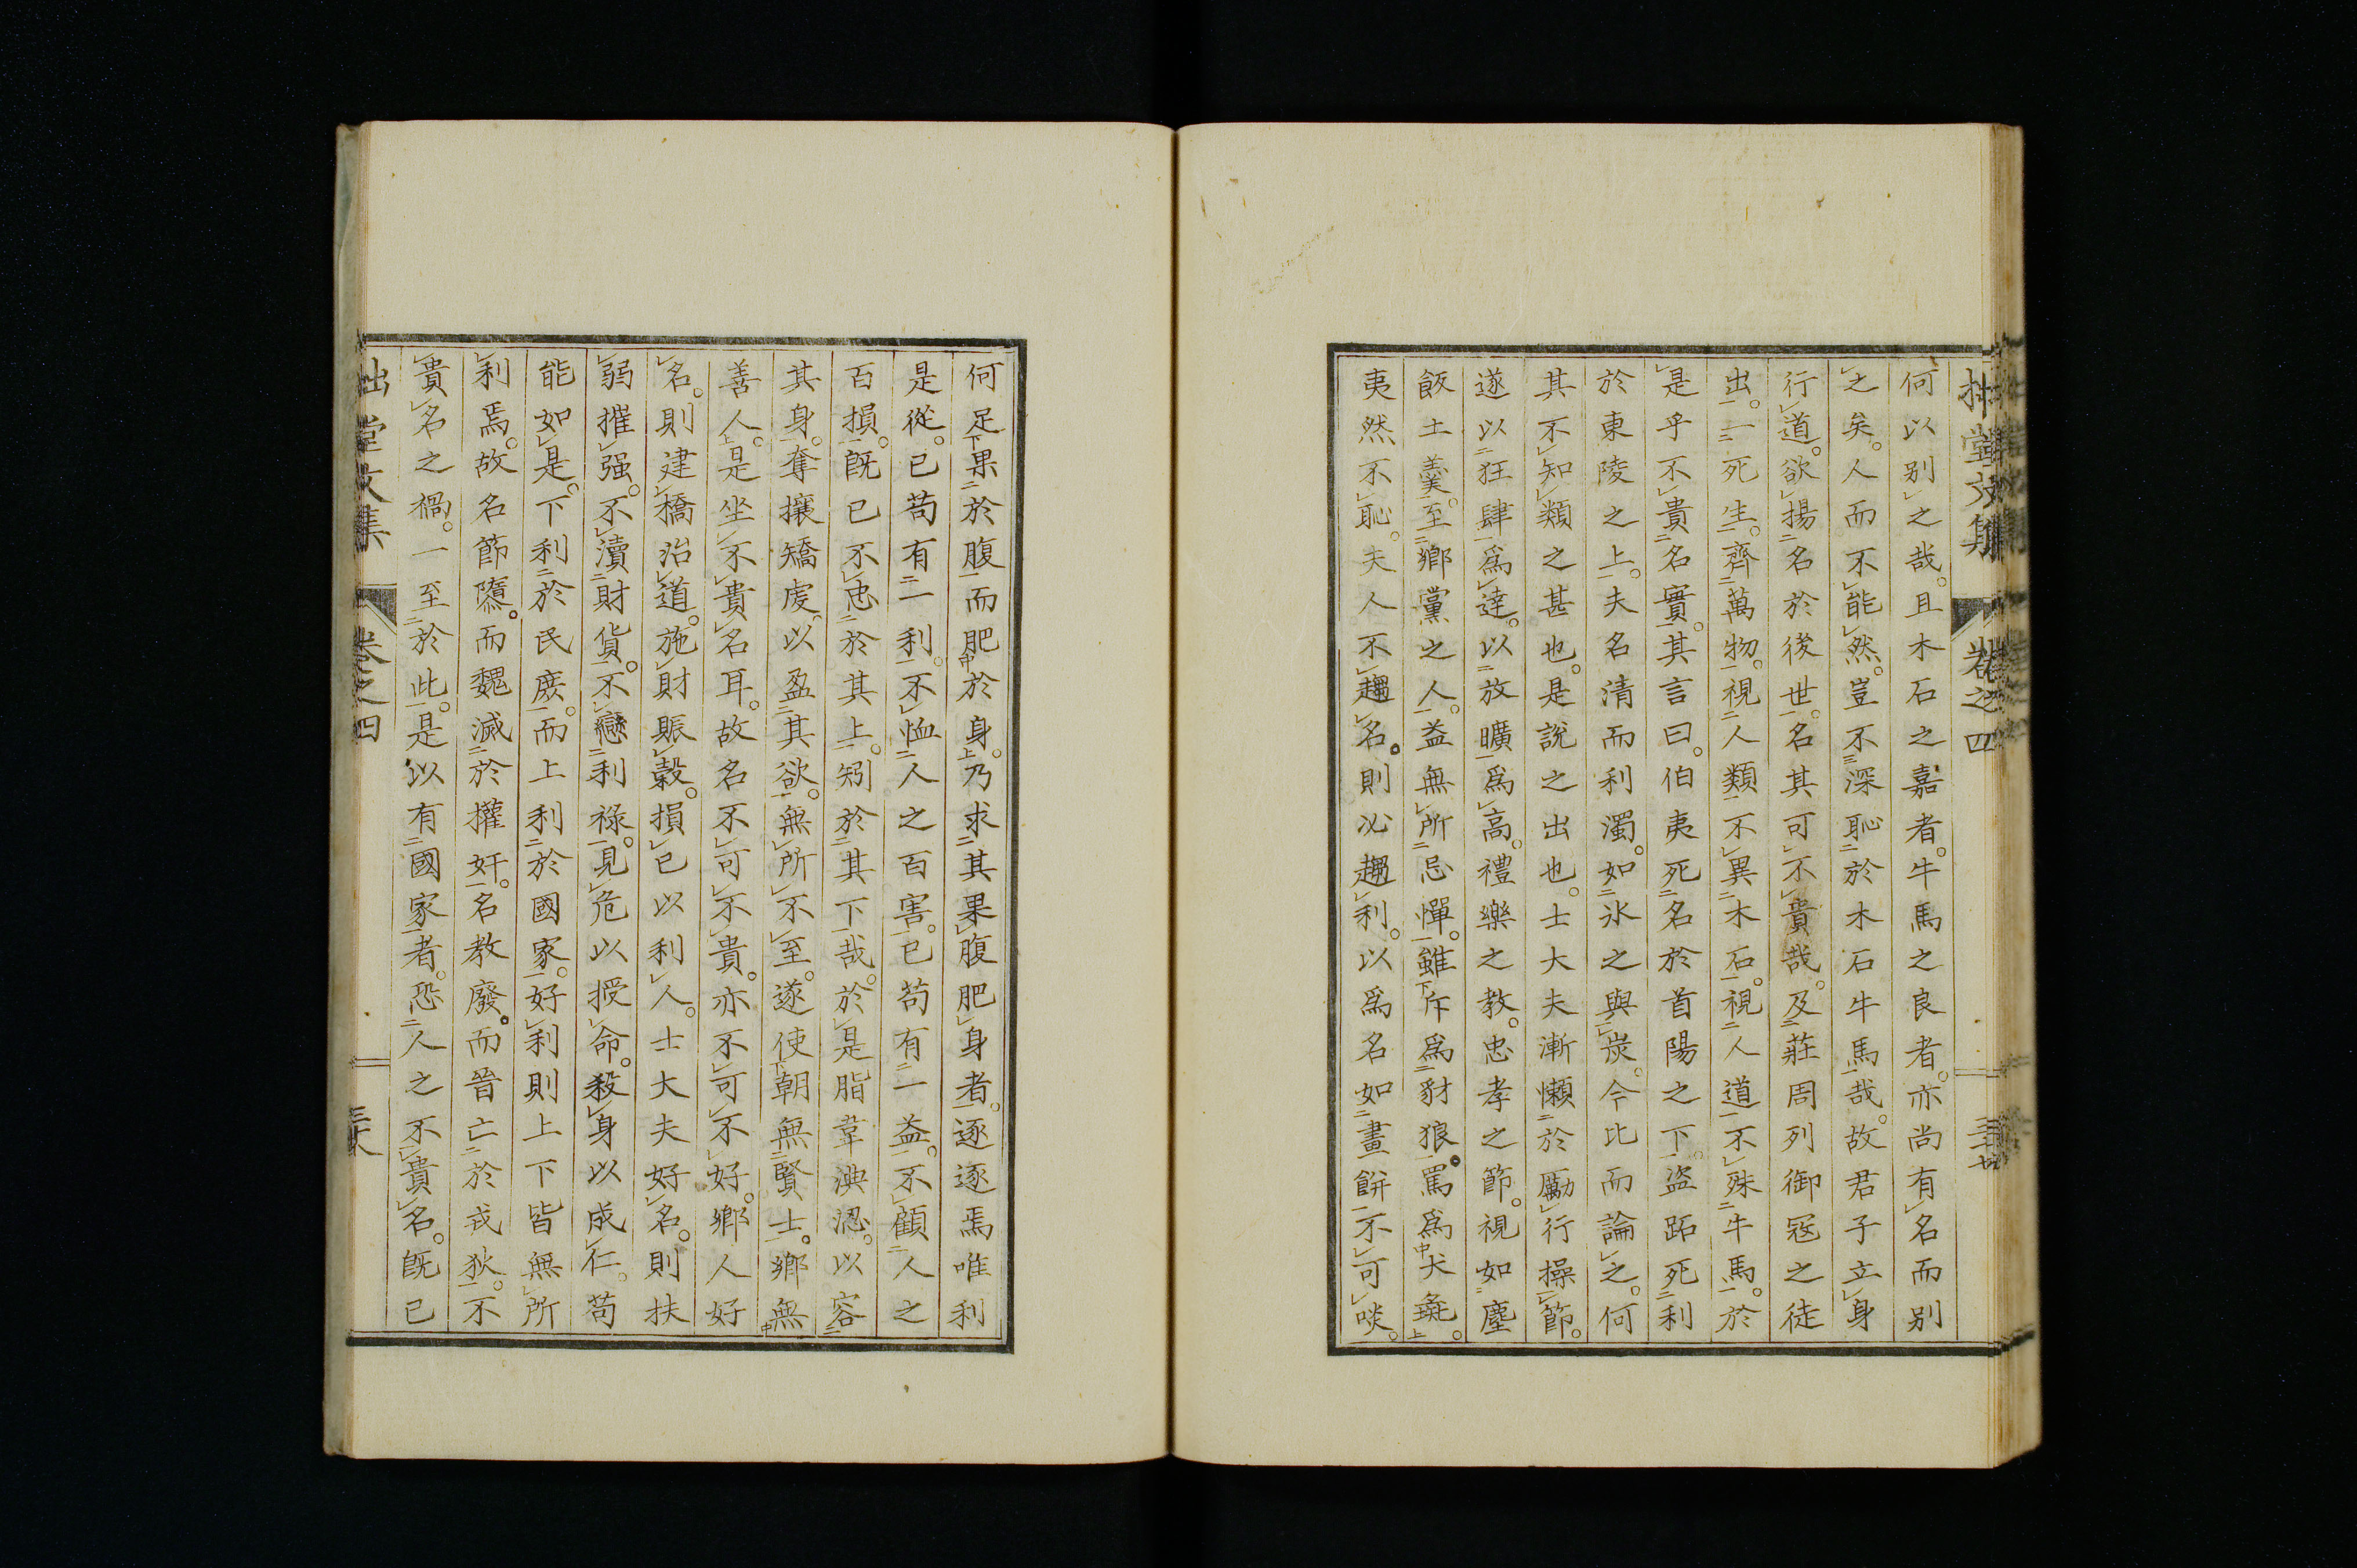 拙堂文集 卷之四
何以别之哉。且木石之嘉者。牛馬之良者。亦尚有名而别
之矣。人而不能然。豈不深恥於木石牛馬哉。故君子立身
行道。欲揚名於後世。名其可不貴哉。及莊周列御寇之徒
出。一死生。齊萬物。視人類不異木石。視人道不殊牛馬。於
是乎不貴名實。其言曰。伯夷死名於首陽之下。盜跖死利
於東陵之上。夫名清而利濁。如氷之與炭。今比而論之。何
其不知類之甚也。是說之出也。士大夫漸懶於勵行操節。
遂以狂肆爲達。以放曠爲高。禮樂之教。忠孝之節。視如塵
飯土羹。至鄉黨之人。益無所忌憚。雖斥爲豺狼。罵爲犬彘。
夷然不恥。夫人不趨名。則必趨利。以爲名如畫餅不可啖。
何足果於腹而肥於身。乃求其果腹肥身者。逐逐焉唯利
是從。已苟有一利。不恤人之百害。已苟有一益。不顧人之
百損。旣已不忠於其上。矧於其下哉。於是脂韋淟涊。以容
其身。奪攘矯虔。以盈其欲。無所不至。遂使朝無賢士。鄉無
善人。是坐不貴名耳。故名不可不貴。亦不可不好。鄉人好
名。則建橋治道。施財賑穀。損已以利人。士大夫好名。則扶
弱摧强。不瀆財貨。不戀利祿。見危以授命。殺身以成仁。苟
能如是。下利於民庶。而上利於國家。好利則上下皆無所
利焉。故名節隳。而魏滅於權奸。名教廢。而晉亡於戎狄。不
貴名之禍。一至於此。是以有國家者。恐人之不貴名。旣已
拙堂文集 卷之四